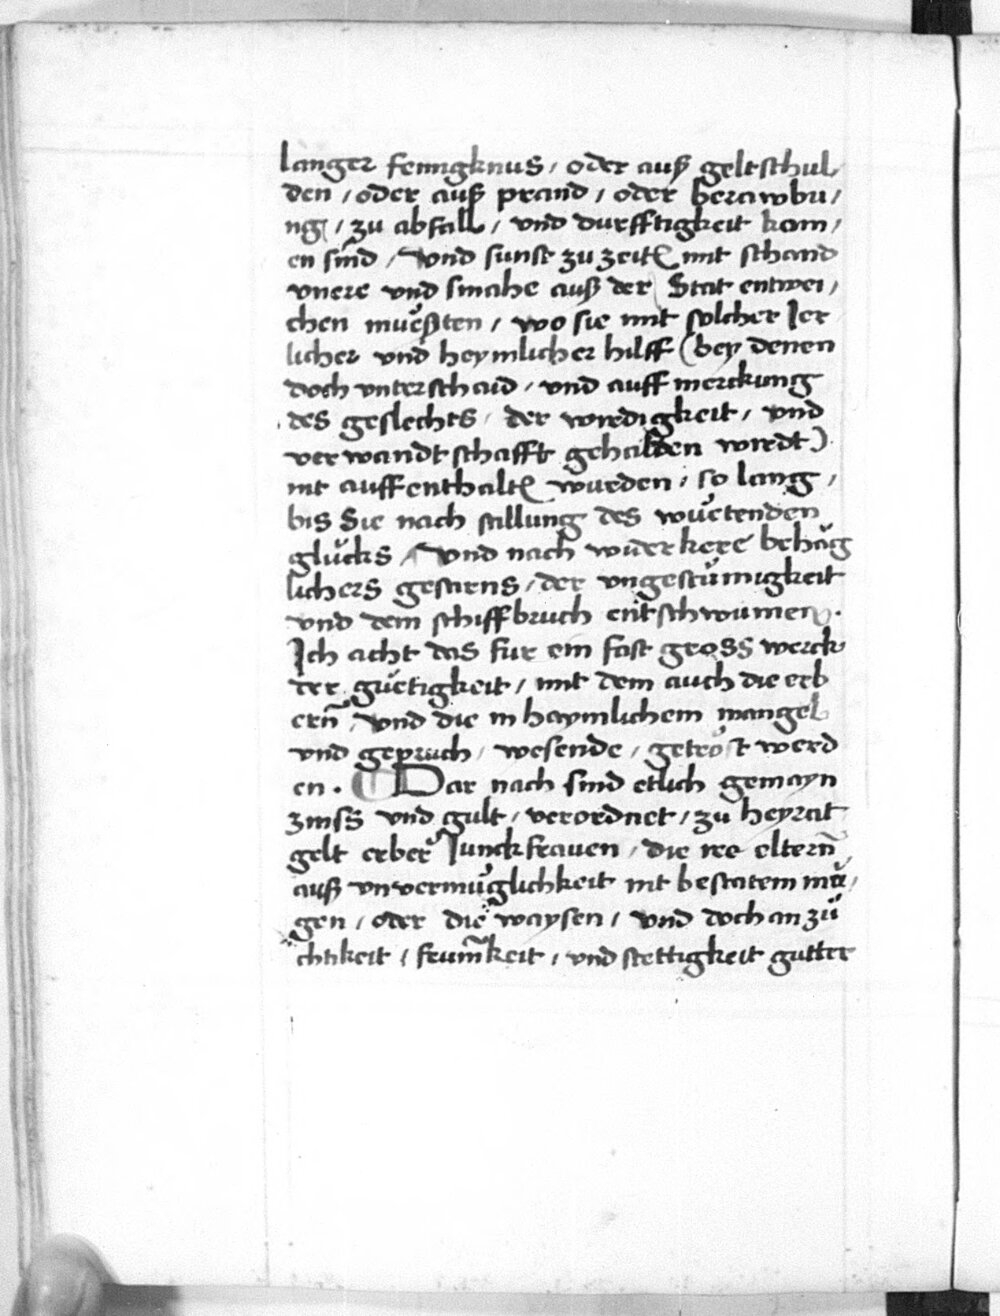 langer fenngknus / oder auß geltschul/
den / oder auß prand / oder berawbu/
ng / zu abfall / vnd durfftigkeit kom/
en sind / vnd sunst zu zeitẽ mit schand
vnere vnd smahe auß der Stat entwei/
chen mueͤßten / wo sie mit solcher Jer
licher vnd heymlicher hilff (bey denen
doch vnterschaid / vnd auffmerckung
des geslechts / der wirdigkeit / vnd
verwandtschafft gehalden wirdt)
nit auffenthaltẽ wurden / so lang /
bis Sie nach stillung des wuͤetenden
gluͤcks / vnd nach widerkere behaͤg
lichers gestirns / der vngestuͤmigkeit
vnd dem schiffbruch entschwumen.
Ich acht das fur ein fast gross werck
der guͤetigkeit / mit dem auch die erb
ern̄ / vnd die in haymlichem mangel
vnd gepruch / wesende / getroͤst werd
en. ¶ Dar nach sind etlich gemayn
zinss vnd gult / verordnet / zu heyrat
gelt erber Junckfrauen / die ire eltern̄
auß vnvermuͤglichkeit nit bestatem muͤ/
gen / oder die waysen / vnd doch an zuͤ
chtikeit / frum̄keit / vnd stettigkeit gutter